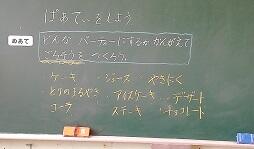 ぱあてぃをしよう
めあて
どんな パーティーにするか かんがえて
ごちそうを つくろう。
ケーキ ジュース やきにく
とりのまるやき アイスケーキ デザート
コーラ ステーキ チョコレート